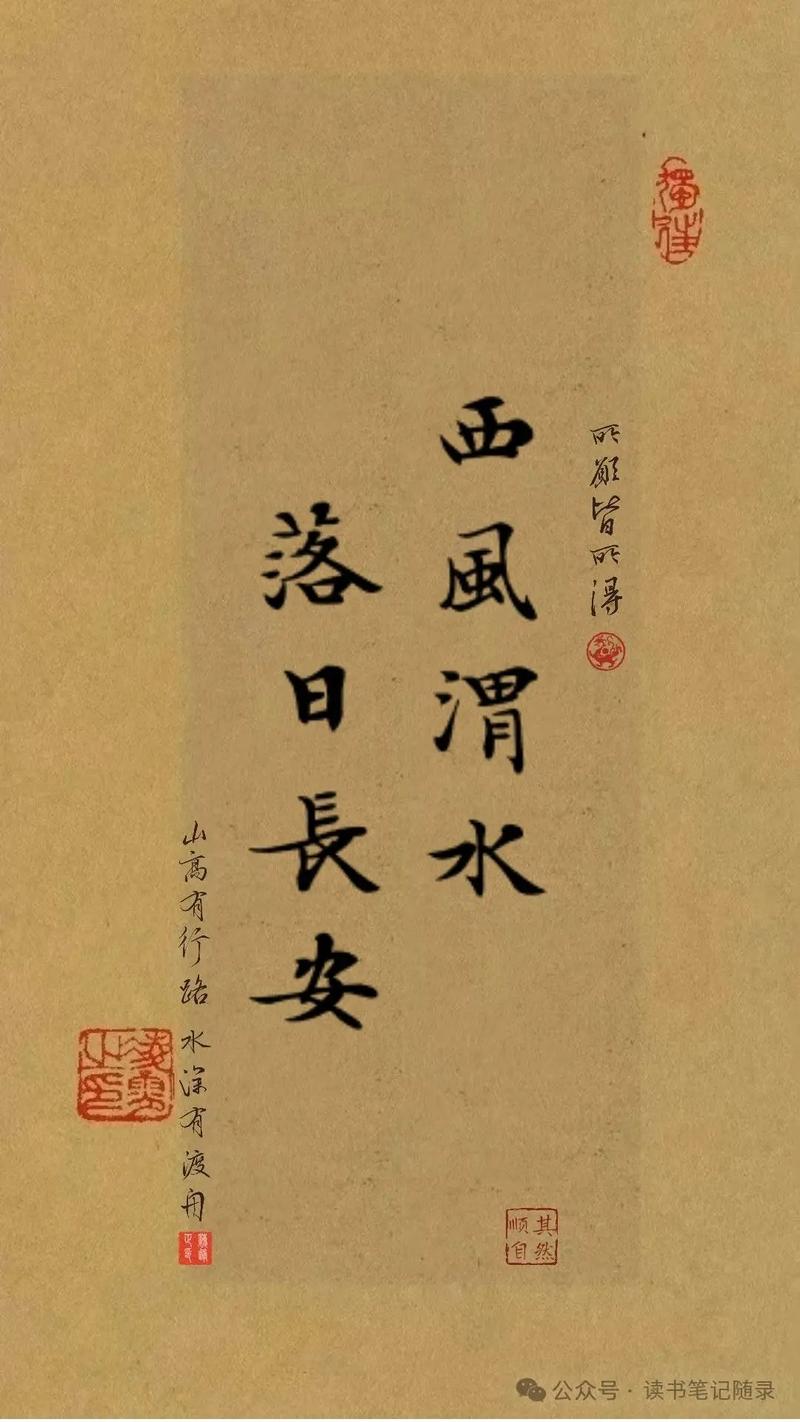 所愿皆所得
西風渭水
落日長安
山高有行路 水深有渡舟
顺其自然
公众号 · 读书笔记随录